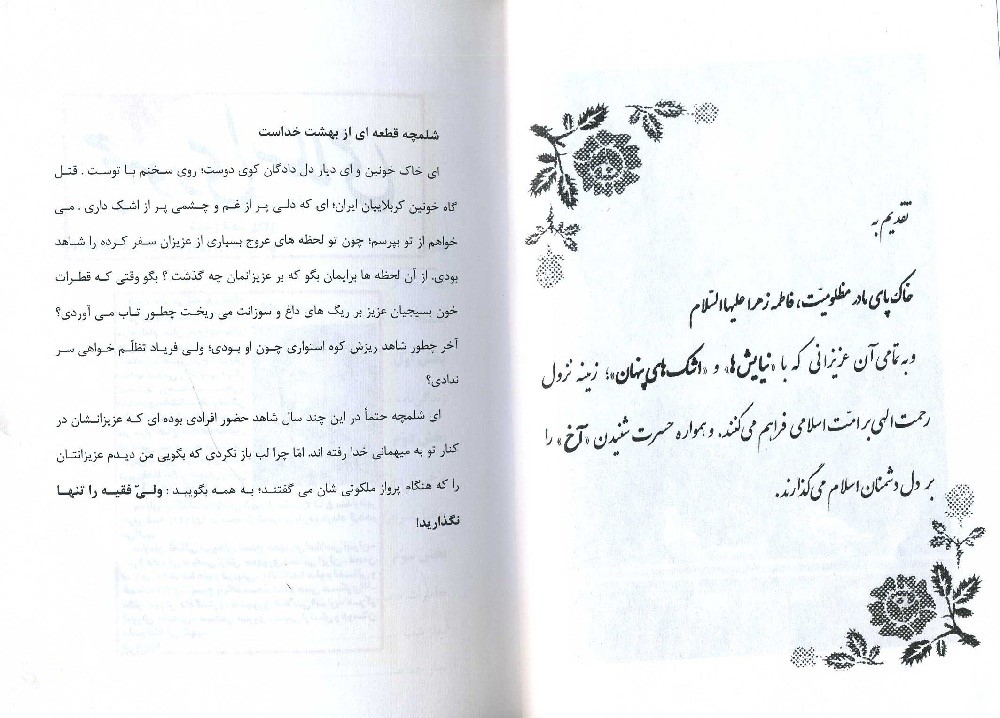 تقدیم به
خاک پای مادر مظلومیّت، فاطمه زهرا علیها السّلام
و به تمامی آن عزیزانی که با «نیایش‌ها» و «اشک‌های پنهان»؛ زمینه نزول
رحمت الهی بر امّت اسلامی فراهم می‌کنند. و همواره حسرت شنیدن «آخ» را
بر دل دشمنان اسلام می‌گذارند.
شلمچه قطعه ای از بهشت خداست
ای خاک خونین و ای دیار دل دادگان کوی دوست؛ روی سخنم با توست . قتل
گاه خونین کربلاییان ایران؛ ای که دلی پر از غم و چشمی پر از اشک داری . می
خواهم از تو بپرسم؛ چون تو لحظه های عروج بسیاری از عزیزان سفر کرده را شاهد
بودی. از آن لحظه ها برایمان بگو که بر عزیزانمان چه گذشت ؟ بگو وقتی که قطرات
خون بسیجیان عزیز بر ریگ های داغ و سوزانت می ریخت چطور تاب می آوردی؟
آخر چطور شاهد ریزش کوه استواری چون او بودی؛ ولی فریاد تظلّم خواهی سر
ندادی؟
ای شلمچه حتماً در این چند سال شاهد حضور افرادی بوده ای که عزیزانشان در
کنار تو به میهمانی خدا رفته اند. امّا چرا لب باز نکردی که بگویی من دیدم عزیزانتان
را که هنگام پرواز ملکوتی شان می گفتند؛ به همه بگویید : ولیّ فقیه را تنها
نگذارید!